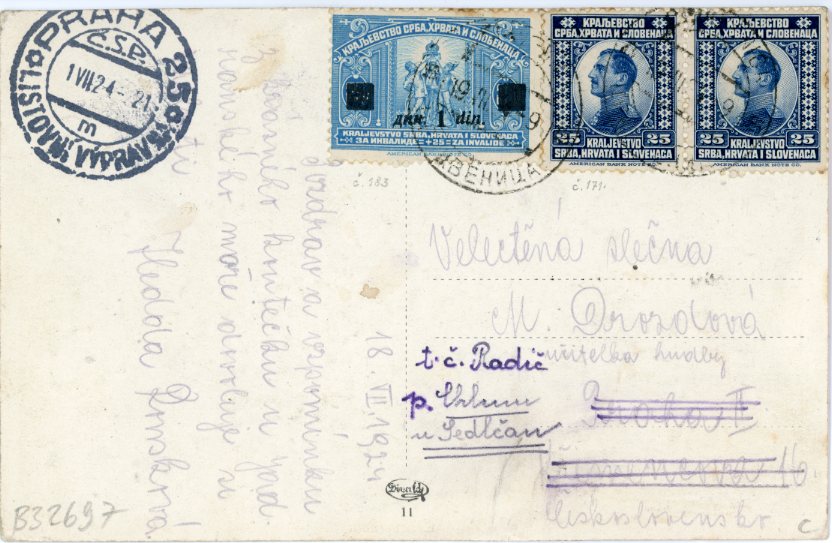 PRAHA 25
Č.S.P.
1 VII 24 - 21
m
LISTOVNÍ VÝPRAVNA
КРАЉЕВСТВО СРБА, ХРВАТА И СЛОВЕНАЦА
дин. 1 din.
KRALJEVSTVO SRBA, HRVATA I SLOVENACA
ЗА ИНВАЛИДЕ +25 ZA INVALIDE
AMERICAN BANK NOTE CO.
КРАЉЕВСТВО
СРБА, ХРВАТА И СЛОВЕНАЦА
25 KRALJEVSTVO 25
SRBA, HRVATA I SLOVENACA
AMERICAN BANK NOTE CO.
КРАЉЕВСТВО
СРБА, ХРВАТА И СЛОВЕНАЦА
25 KRALJEVSTVO 25
SRBA, HRVATA I SLOVENACA
AMERICAN BANK NOTE CO.
ВЕНИЦА
č. 183
č. 171
18. VII. 1924
Pozdrav a vzpomínku
z krásného koutečku u Jad
ranského moře dovoluje si
Hedda
Velectěná slečna
M. Drozdová
učitelka hudby
t.č. Radič
p.
u Sedlčan
Praha II
16.
Československo
Divald
11
B32697
C